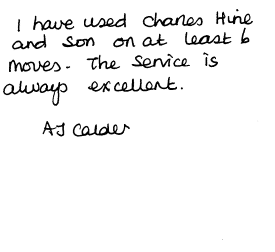 I have used Charles Hine
and Son on at least 6
moves. The Service is
always excellent.
AJ Calder